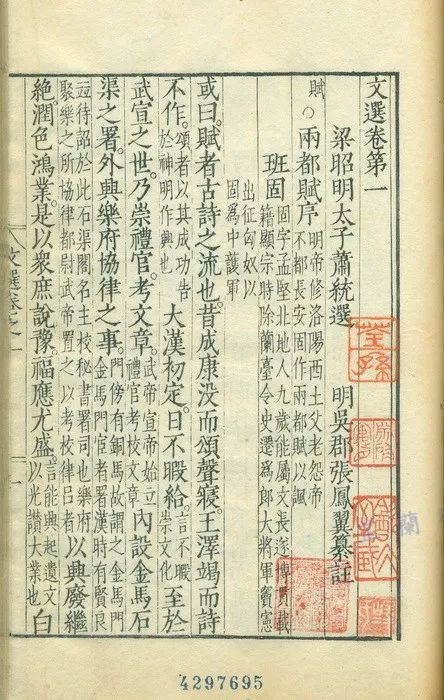 文選卷第一
梁昭明太子蕭統選 明吳郡張鳳翼纂註
賦○兩都賦序 明帝修洛陽西土父老怨帝不都長安固作兩都賦以諷
班固 固字孟堅北地人九歲能屬文長遂博貫載籍顯宗時除蘭臺令史遷為郎大將軍竇憲
出征匈奴以固為中護軍
或曰。賦者古詩之流也。昔成康没而頌聲寢。王澤竭而詩
不作。頌者以其成功告於神明作興也 大漢初定。日不暇給。言不暇崇文化 至於
武宣之世。乃崇禮官。考文章。武帝宣帝始立禮官考校文章 內設金馬石
渠之署。外興樂府協律之事。門傍有銅馬故謂之金馬門金馬門宦者署漢時有賢良
並待詔於此石渠閣名主校秘書署司也樂府聚樂之所協律都尉武帝置之以考校律呂者 以興廢繼
絕潤色鴻業。是以衆庶說豫。福應尤盛。言能興起遺文以光讚大業也 白
文選卷之一
4297695